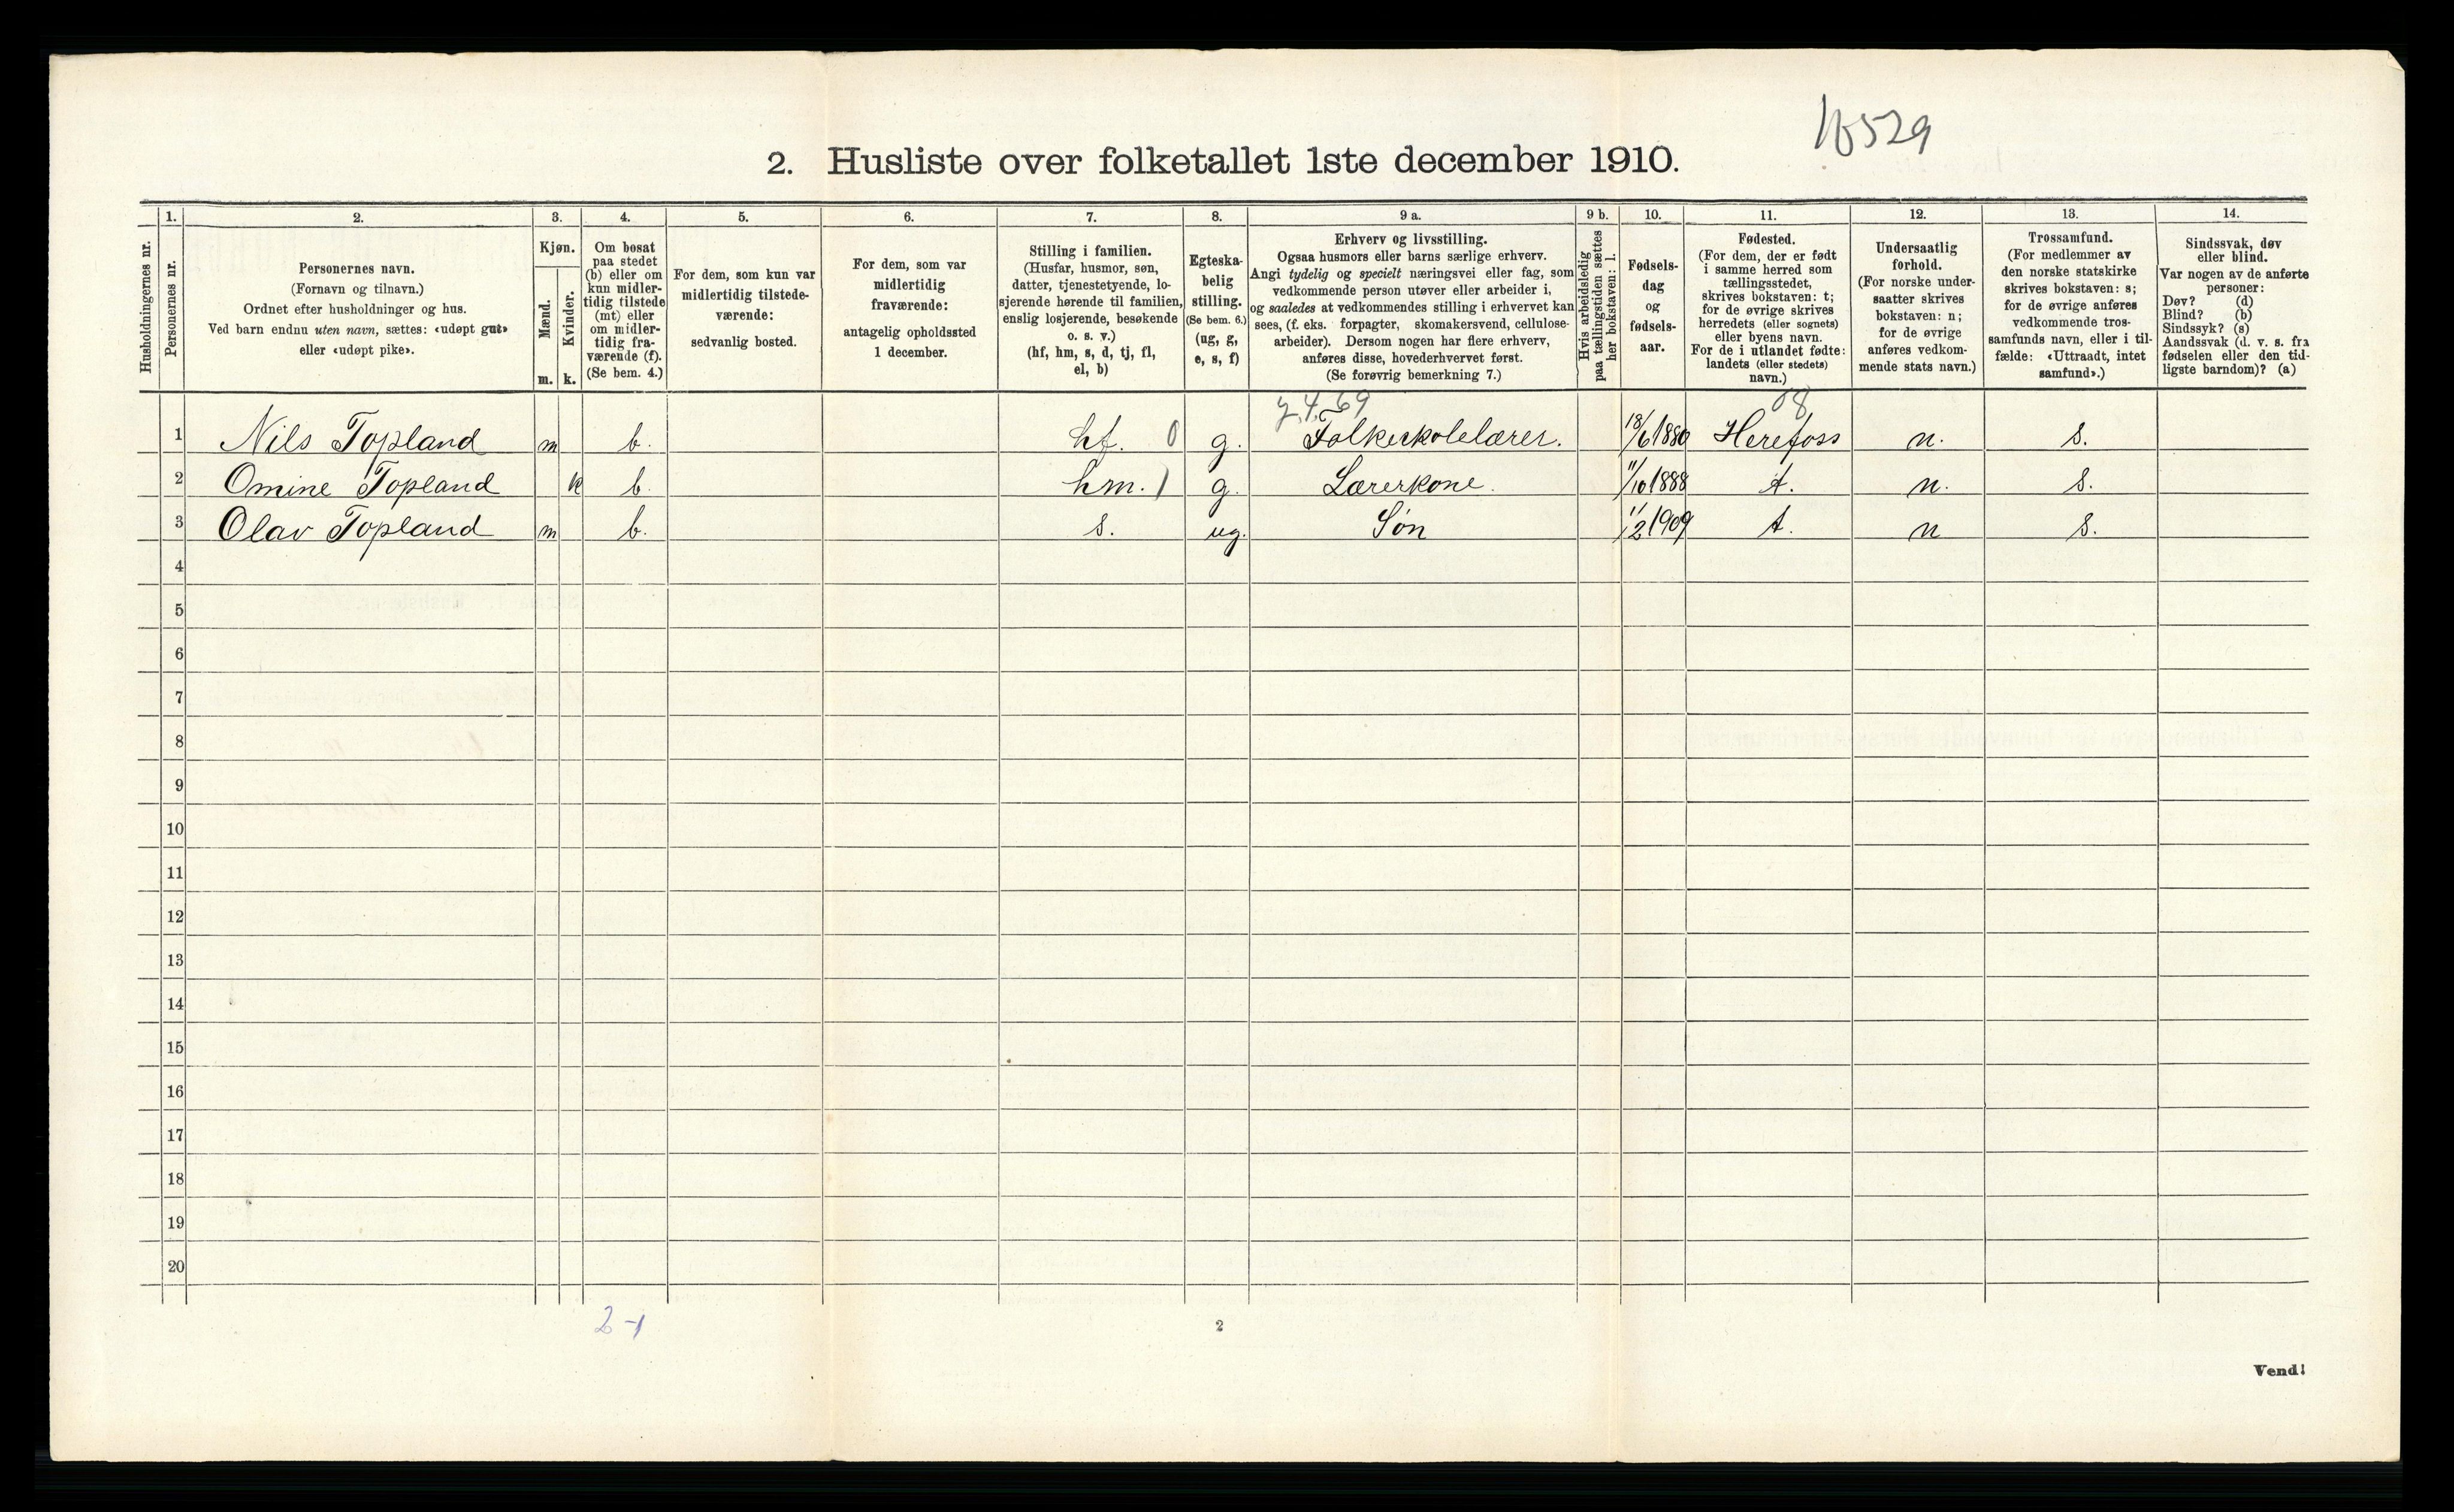 2. Husliste over folketallet 1ste december 1910.
1. 2. 3. 4. 5. 6. 7. 8. 9 a. 9 b. 10. 11. 12. 13. 14.
Husholdningernes nr.
Personernes nr.
Personernes navn.
(Fornavn og tilnavn.)
Ordnet efter husholdninger og hus.
Ved barn endnu uten navn, sættes: «udøpt gut»
eller «udøpt pike».
Kjøn.
Mænd.
Kvinder.
m. k.
Om bosat
paa stedet
(b) eller om
kun midler-
tidig tilstede
(mt) eller
om midler-
tidig fra-
værende (f).
(Se bem. 4.)
For dem, som kun var
midlertidig tilstede-
værende:
sedvanlig bosted.
For dem, som var
midlertidig
fraværende:
antagelig opholdssted
1 december.
Stilling i familien.
(Husfar, husmor, søn,
datter, tjenestetyende, lo-
sjerende hørende til familien,
enslig losjerende, besøkende
o. s. v.)
(hf, hm, s, d, tj, fl,
el, b)
Egteska-
belig
stilling.
(Se bem. 6.)
(ug, g,
e, s, f)
Erhverv og livsstilling.
Ogsaa husmors eller barns særlige erhverv.
Angi tydelig og specielt næringsvei eller fag, som
vedkommende person utøver eller arbeider i,
og saaledes at vedkommendes stilling i erhvervet kan
sees, (f. eks. forpagter, skomakersvend, cellulose-
arbeider). Dersom nogen har flere erhverv,
anføres disse, hovederhvervet først.
(Se forøvrig bemerkning 7.)
Hvis arbeidsledig
paa tællingstiden sættes
her bokstaven: l.
Fødsels-
dag
og
fødsels-
aar.
Fødested.
(For dem, der er født
i samme herred som
tællingsstedet,
skrives bokstaven: t;
for de øvrige skrives
herredets (eller sognets)
eller byens navn.
For de i utlandet fødte:
landets (eller stedets)
navn.)
Undersaatlig
forhold.
(For norske under-
saatter skrives
bokstaven: n;
for de øvrige
anføres vedkom-
mende stats navn.)
Trossamfund.
(For medlemmer av
den norske statskirke
skrives bokstaven: s;
for de øvrige anføres
vedkommende tros-
samfunds navn, eller i til-
fælde: «Uttraadt, intet
samfund».)
Sindssvak, døv
eller blind.
Var nogen av de anførte
personer:
Døv? (d)
Blind? (b)
Sindssyk? (s)
Aandssvak (d. v. s. fra
fødselen eller den tid-
ligste barndom)? (a)
08
1 Nils Topland m b. hf. 0 g. Folkeskolelærer. 18/6 1880 Herefoss n. s.
2 Omine Topland k b. hm. 1 g. Lærerkone. 11/10 1888 t. n. s.
3 Olav Topland m b. s. ug. Søn 11/2 1909 t. n s.
4
5
6
7
8
9
10
11
12
13
14
15
16
17
18
19
20
2-1
2
Vend!